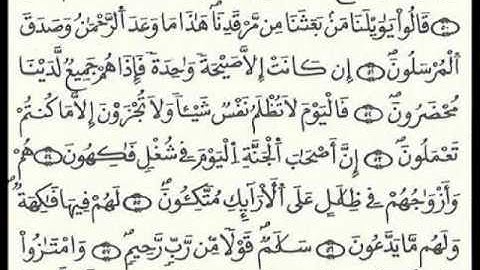 ٥٠ قَالُواْ يَٰوَيْلَنَا مَنۢ بَعَثَنَا مِن مَّرْقَدِنَا هَٰذَا مَا وَعَدَ ٱلرَّحْمَٰنُ وَصَدَقَ
ٱلْمُرْسَلُونَ ٥١ إِن كَانَتْ إِلَّا صَيْحَةً وَٰحِدَةً فَإِذَا هُمْ جَمِيعٌ لَّدَيْنَا
مُحْضَرُونَ ٥٢ فَالْيَوْمَ لَا تُظْلَمُ نَفْسٌ شَيْـًٔا وَلَا تُجْزَوْنَ إِلَّا مَا كُنتُمْ
تَعْمَلُونَ ٥٣ إِنَّ أَصْحَٰبَ ٱلْجَنَّةِ اِ۬لْيَوْمَ فِي شُغْلٍ فَٰكِهُونَ ٥٤ هُمْ
وَأَزْوَٰجُهُمْ فِي ظِلَٰلٍ عَلَى ٱلْأَرَآئِكِ مُتَّكِـُٔونَ ٥٥ لَهُمْ فِيهَا فَٰكِهَةٌ
وَلَهُم مَّا يَدَّعُونَ ٥٦ سَلَٰمٌ قَوْلًا مِّن رَّبٍّ رَّحِيمٍ ٥٧ وَامْتَٰزُواْ